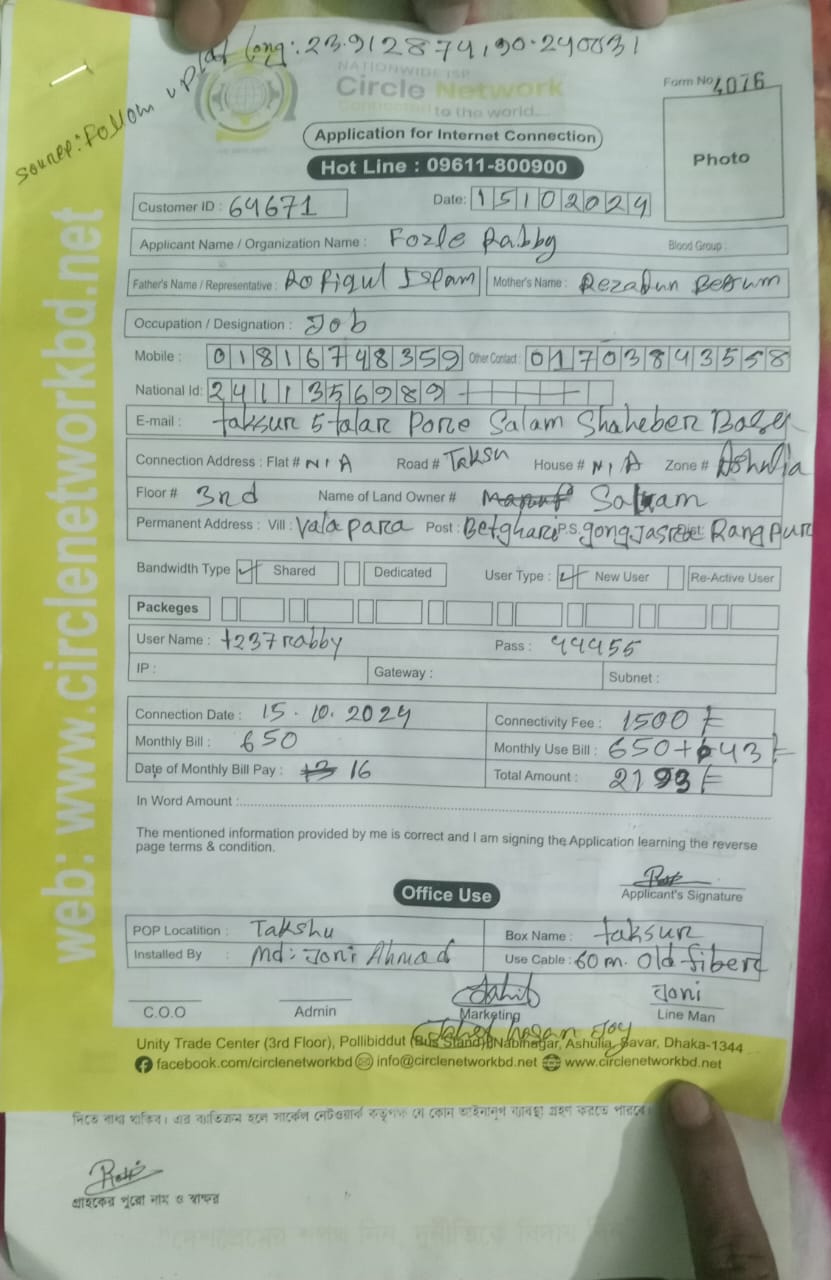 Lat Long: 23.912874,90.240831
Source: Follow up
NATIONWIDE ISP
Circle Network
Connected to the world...
Form No 4076
Application for Internet Connection
Photo
Hot Line : 09611-800900
Customer ID : 64671 Date: 15102024
Applicant Name / Organization Name : Fozle Rabby Blood Group :
Father's Name / Representative : Rofiqul Islam Mother's Name : Rezabun Begum
Occupation / Designation : Job
Mobile : 01816748359 Other Contact : 01703843558
National Id: 2411356989
E-mail : taksur 5 talar Pore Salam Shaheber Basa
Connection Address : Flat # N/A Road # Taksu House # N/A Zone # Ashulia
Floor # 3rd Name of Land Owner # Salam
Permanent Address : Vill : Valapara Post : Betghari P.S. Dist: Rangpur
Bandwidth Type Shared Dedicated User Type : New User Re-Active User
Packeges
User Name : t237rabby Pass : 44455
IP : Gateway : Subnet :
Connection Date : 15.10.2024 Connectivity Fee : 1500/=
Monthly Bill : 650 Monthly Use Bill : 650+643/=
Date of Monthly Bill Pay : 13 16 Total Amount : 2193/=
In Word Amount :
The mentioned information provided by me is correct and I am signing the Application learning the reverse
page terms & condition.
Applicant's Signature
Office Use
POP Locatition : Takshu Box Name : taksur
Installed By : Md: Joni Ahmad Use Cable : 60 m. Old fiber
Joni
C.O.O Admin Marketing Line Man
Unity Trade Center (3rd Floor), Pollibiddut (Bus Stand), Nabinagar, Ashulia, Savar, Dhaka-1344
facebook.com/circlenetworkbd info@circlenetworkbd.net www.circlenetworkbd.net
web: www.circlenetworkbd.net
দিতে বাধ্য থাকিব। এর ব্যতিক্রম হলে সার্কেল নেটওয়ার্ক কতৃপক্ষ যে কোন আইনানুগ ব্যবস্থা গ্রহণ করতে পারবে।
গ্রাহকের পুরো নাম ও স্বাক্ষর